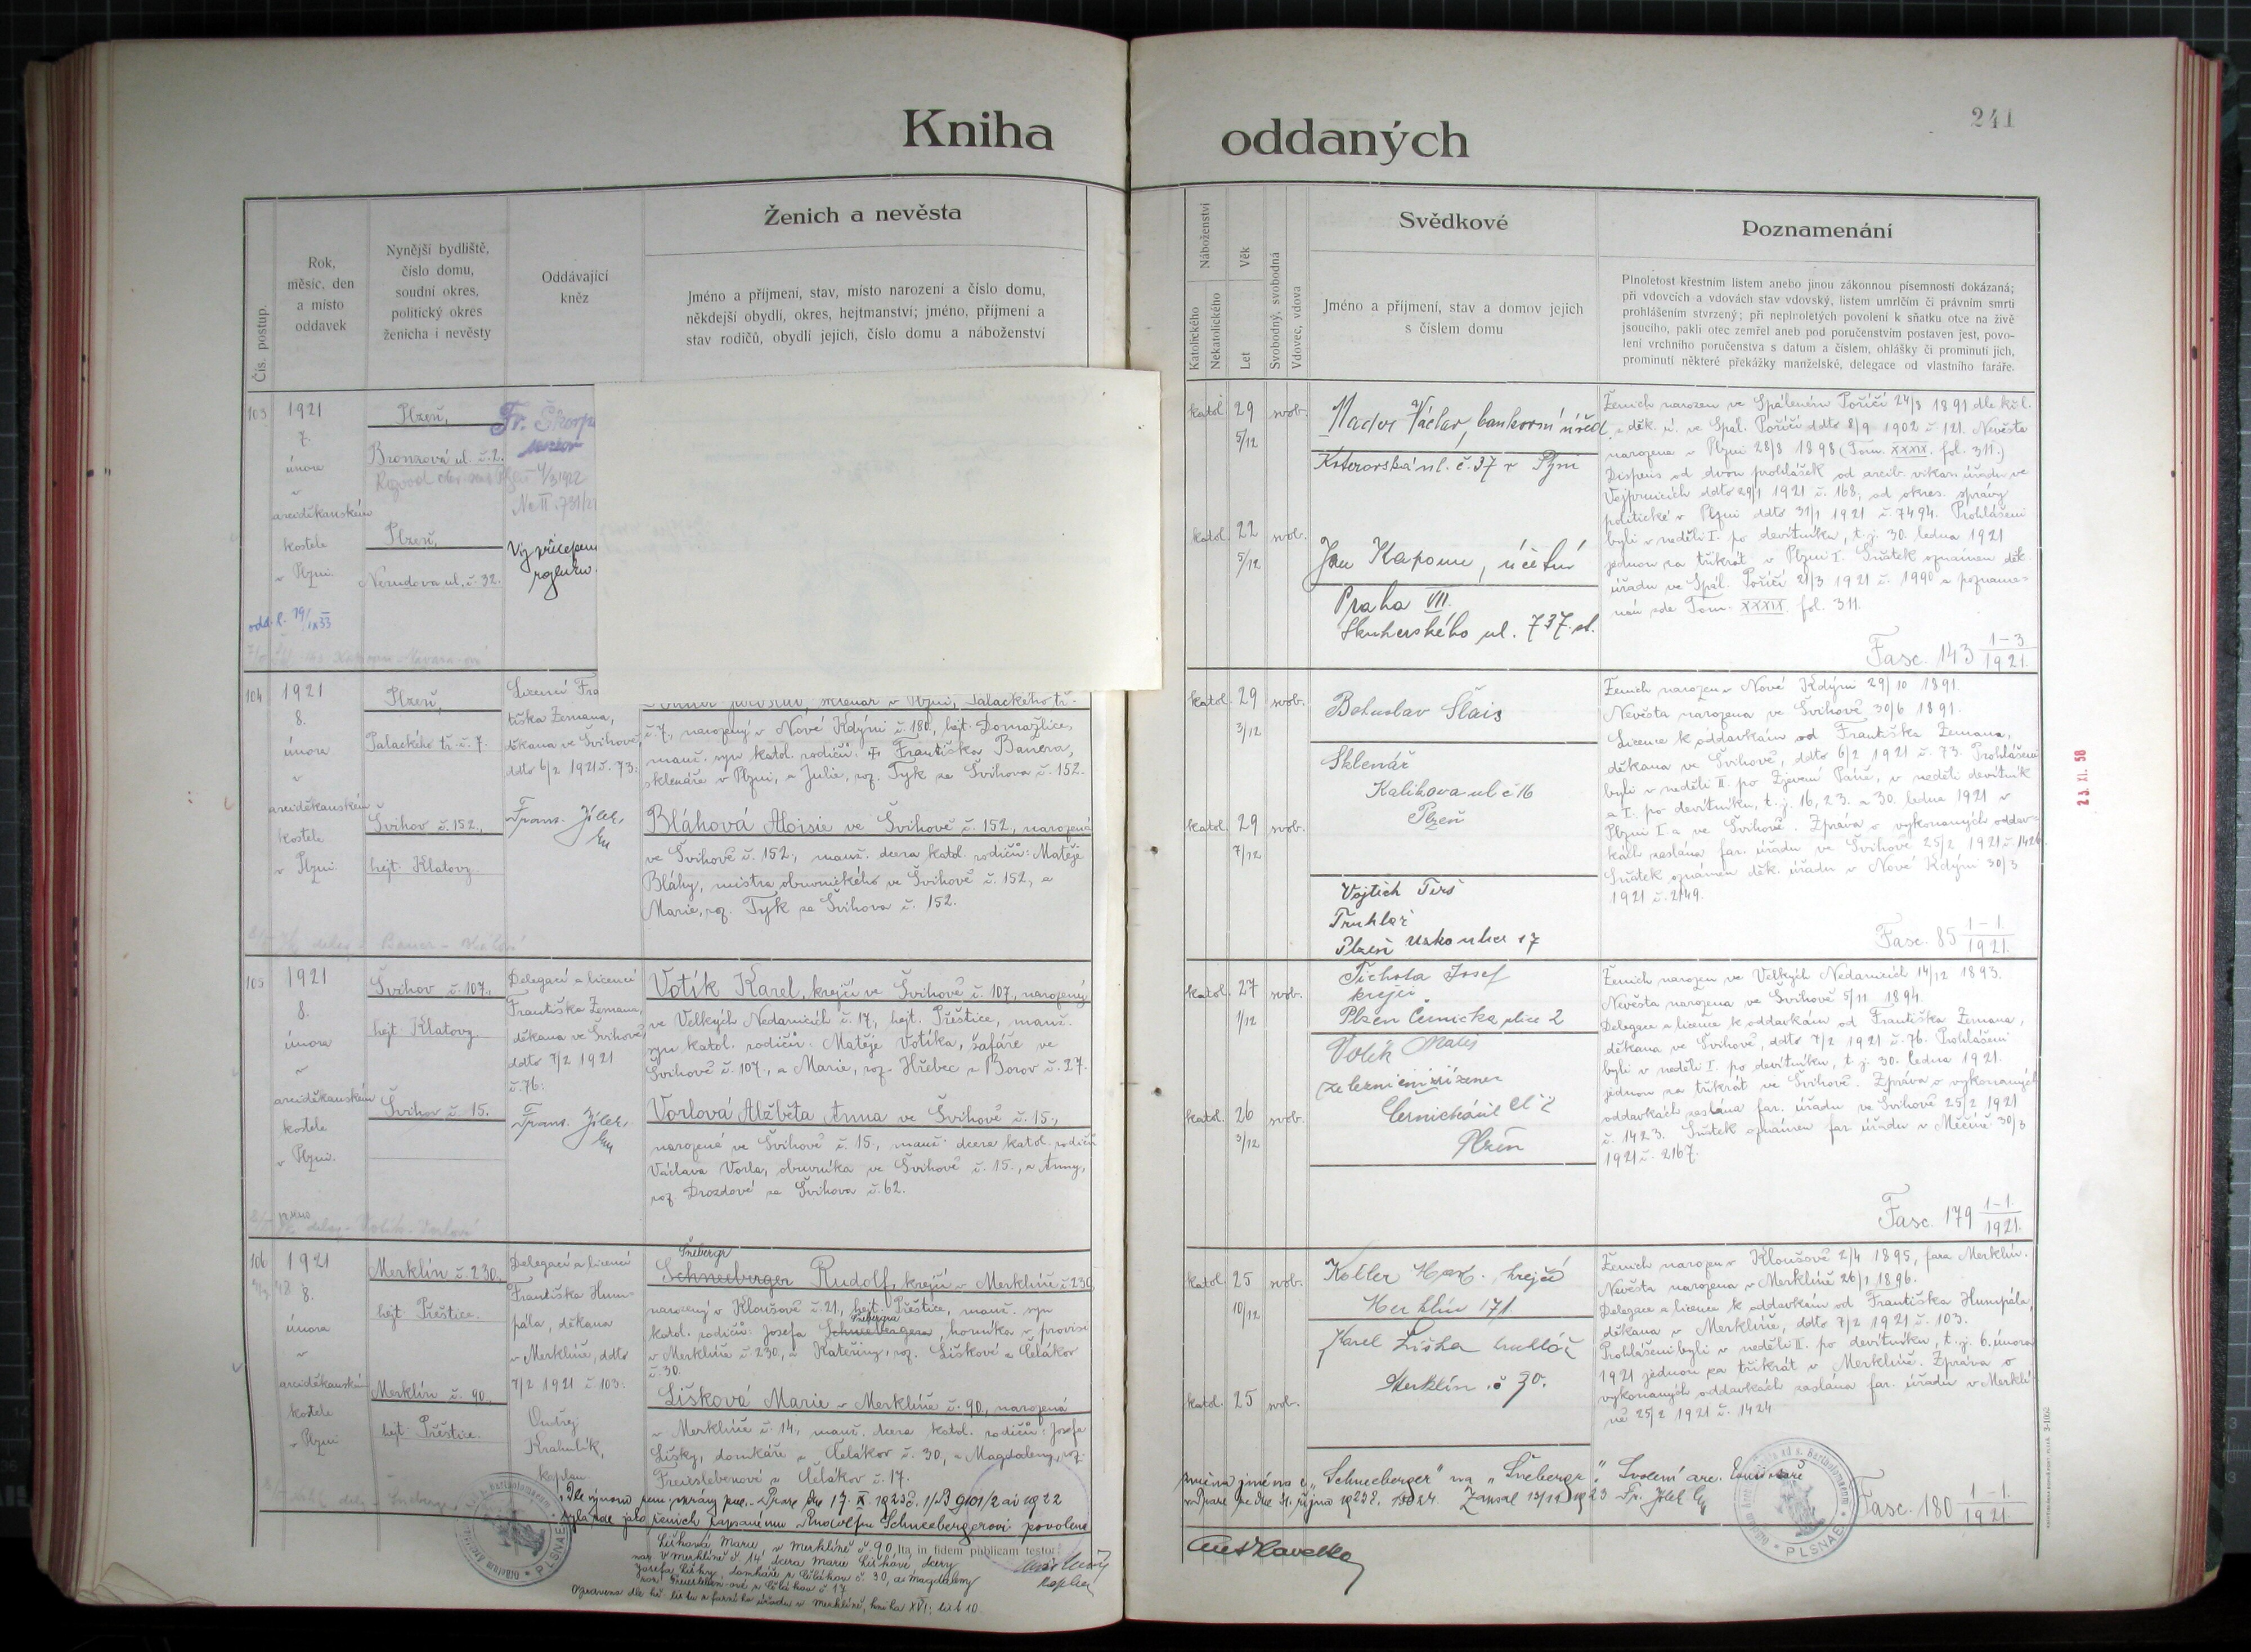 Kniha
oddaných
241
Čís. postup.
Rok,
měsíc, den
a místo
oddavek
Nynější bydliště,
číslo domu,
soudní okres,
politický okres
ženicha i nevěsty
Oddávající
kněz
Ženich a nevěsta
Jméno a příjmení, stav, místo narození a číslo domu,
někdejší obydlí, okres, hejtmanství; jméno, příjmení a
stav rodičů, obydlí jejich, číslo domu a náboženství
Náboženství
Katolického
Nekatolického
Věk
Let
Svobodný, svobodná
Vdovec, vdova
Svědkové
Jméno a příjmení, stav a domov jejich
s číslem domu
Poznamenání
Plnoletost křestním listem anebo jinou zákonnou písemností dokázaná;
při vdovcích a vdovách stav vdovský, listem umrlčím či právním smrti
prohlášením stvrzený; při neplnoletých povolení k sňatku otce na živě
jsoucího, pakli otec zemřel aneb pod poručenstvím postaven jest, povo-
lení vrchního poručenstva s datum a číslem, ohlášky či prominutí jich,
prominutí některé překážky manželské, delegace od vlastního faráře.
103
1921
7.
února
v
arciděkanském
kostele
v Plzni.
Plzeň,
Bronzová ul. č. 2.
Plzeň,
Nerudova ul. č. 32.
Fr. Škorp
katol. 29 svob.
5/12
katol. 22 svob.
5/12
Václav, bankovní úřed.
Koterovská ul. č. 37 v Plzni
Jan Kapoun, účetní
Praha VII.
Skuherského ul. 737
Ženich narozen ve Spáleném Poříčí 24/3 1891 dle kř. l.
děk. ú. ve Spál. Poříčí ddto 8/9 1902 č. 121. Nevěsta
narozena v Plzni 28/8 1898 (Tom. XXXIX. fol. 311.)
Dispens od dvou prohlášek od arcib. vikar. úřadu ve
Vejprnicích ddto 29/1 1921 č. 168, od okres. správy
politické v Plzni ddto 31/1 1921 č. 7494. Prohlášení
byli v neděli I. po devítníku, t. j. 30. ledna 1921
jednou za třikrát v Plzni I. Sňatek oznámen děk.
úřadu ve Spál. Poříčí 21/3 1921 č. 1990 a pozname-
nán zde Tom. XXXIX. fol. 311.
Fasc. 143 1-3/1921.
104
1921
8.
února
v
arciděkanském
kostele
v Plzni.
Plzeň,
Palackého tř. č. 7.
Švihov č. 152.,
hejt. Klatovy.
Licencí Fra
tiška Zemana,
děkana ve Švihově,
ddto 6/2 1921 č. 73:
Frant. Jílek,
sklenář v Plzni, Palackého tř.
č. 7, narozený v Nové Kdyni č. 180, hejt. Domažlice,
manž. syn katol. rodičů: † Františka Bauera,
sklenáře v Plzni, a Julie, roz. Tyk ze Švihova č. 152.
Bláhová Aloisie ve Švihově č. 152, narozená
ve Švihově č. 152, manž. dcera katol. rodičů: Matěje
Bláhy, mistra obuvnického ve Švihově č. 152, a
Marie, roz. Tyk ze Švihova č. 152.
katol. 29 svob.
3/12
katol. 29 svob.
7/12
Bohuslav Šlais
Sklenář
Kalikova ul č 16
Plzeň
Vojtěch
Truhlář
Plzeň Úzká ulice 17
Ženich narozen v Nové Kdyni 29/10 1891.
Nevěsta narozena ve Švihově 30/6 1891.
Licence k oddavkám od Františka Zemana,
děkana ve Švihově, ddto 6/2 1921 č. 73. Prohlášeni
byli v neděli II. po Zjevení Páně, v neděli devítník
a I. po devítníku, t. j. 16, 23. a 30. ledna 1921 v
Plzni I. a ve Švihově. Zpráva o vykonaných oddav-
kách zaslána far. úřadu ve Švihově 25/2 1921 č. 1426.
Sňatek oznámen děk. úřadu v Nové Kdyni 30/3
1921 č. 2149.
Fasc. 85 1-1./1921.
23. XI. 56
105
1921
8.
února
v
arciděkanském
kostele
v Plzni.
Švihov č. 107.,
hejt. Klatovy.
Švihov č. 15.
Delegací a licencí
Františka Zemana,
děkana ve Švihově,
ddto 7/2 1921
č. 76:
Frant. Jílek,
Votík Karel, krejčí ve Švihově č. 107., narozený
ve Velkých Nedanicích č. 17, hejt. Přeštice, manž.
syn katol. rodičů: Matěje Votíka, šafáře ve
Švihově č. 107., a Marie, roz. Hřebec z Borov č. 27.
Vorlová Alžběta Anna ve Švihově č. 15.,
narozená ve Švihově č. 15., manž. dcera katol. rodičů
Václava Vorla, obuvníka ve Švihově č. 15., a Anny,
roz. Drozdové ze Švihova č. 62.
katol. 27 svob.
1/12
katol. 26 svob.
3/12
Tichota Josef
krejčí
Plzen Černická ulice 2
Votík Matěj
železniční zřízenec
Plzeň
Ženich narozen ve Velkých Nedanicích 14/12 1893.
Nevěsta narozena ve Švihově 5/11 1894.
Delegace a licence k oddavkám od Františka Zemana,
děkana ve Švihově, ddto 7/2 1921 č. 76. Prohlášeni
byli v neděli I. po devítníku, t. j. 30. ledna 1921.
jednou za třikrát ve Švihově. Zpráva o vykonaných
oddavkách zaslána far. úřadu ve Švihově 25/2 1921
č. 1423. Sňatek oznámen far. úřadu v Měčíně 30/3
1921 č. 2167.
Fasc. 179 1-1./1921.
106
1921
8.
února
v
arciděkanském
kostele
v Plzni
Merklín č. 230.
hejt. Přeštice.
Merklín č. 90.
hejt. Přeštice.
Delegací a licencí
Františka Hum-
pála, děkana
v Merklíně, ddto
7/2 1921 č. 103:
Ondřej
Krahulík,
kaplan
Šnebergr
Schneeberger Rudolf, krejčí v Merklíně č. 230
narozený v Kloušově č. 21., hejt. Přeštice, manž. syn
katol. rodičů: Josefa Schneebergera, horníka v provisi
v Merklíně č. 230, a Kateřiny, roz. Liškové z Čelákov
č. 30.
Lišková Marie v Merklíně č. 90, narozená
v Merklíně č. 14, manž. dcera katol. rodičů: Josefa
Lišky, domkáře z Čelákov č. 30, a Magdaleny, roz.
Freislebenové z Čelákov č. 17.
katol. 25 svob.
10/12
katol. 25 svob.
krejčí
Merklín 171
Karel Liška
Merklín č 30.
Ženich narozen v Kloušově 2/4 1895, fara Merklín.
Nevěsta narozena v Merklíně 26/1 1896.
Delegace a licence k oddavkám od Františka Humpála,
děkana v Merklíně, ddto 7/2 1921 č. 103.
Prohlášeni byli v neděli II. po devítníku, t. j. 6. února
1921 jednou za třikrát v Merklíně. Zpráva o
vykonaných oddavkách zaslána far. úřadu v Merklí-
ně 25/2 1921 č. 1424
Fasc. 180 1-1./1921.
Dle výnosu zem. správy pol. v Praze dne 17. X. 1923
bylo zde jako ženich zapsanému Rudolfu Schneebergerovi povolena
změna jména z „Schneeberger" na „Šnebergr".
Lišková Marie, v Merklíně č. 90,
nar. v Merklíně č. 14 dcera Marie Liškové dcery
Josefa Lišky, domkáře z Čelákov č. 30, a Magdaleny
roz. Freisleben-ové z Čelákov č 17
Opraveno dle kř. listu z farního úřadu v Merklíně, kniha XVI; list 10
Ita in fidem publicam testor:
PLSNAE
PLSNAE